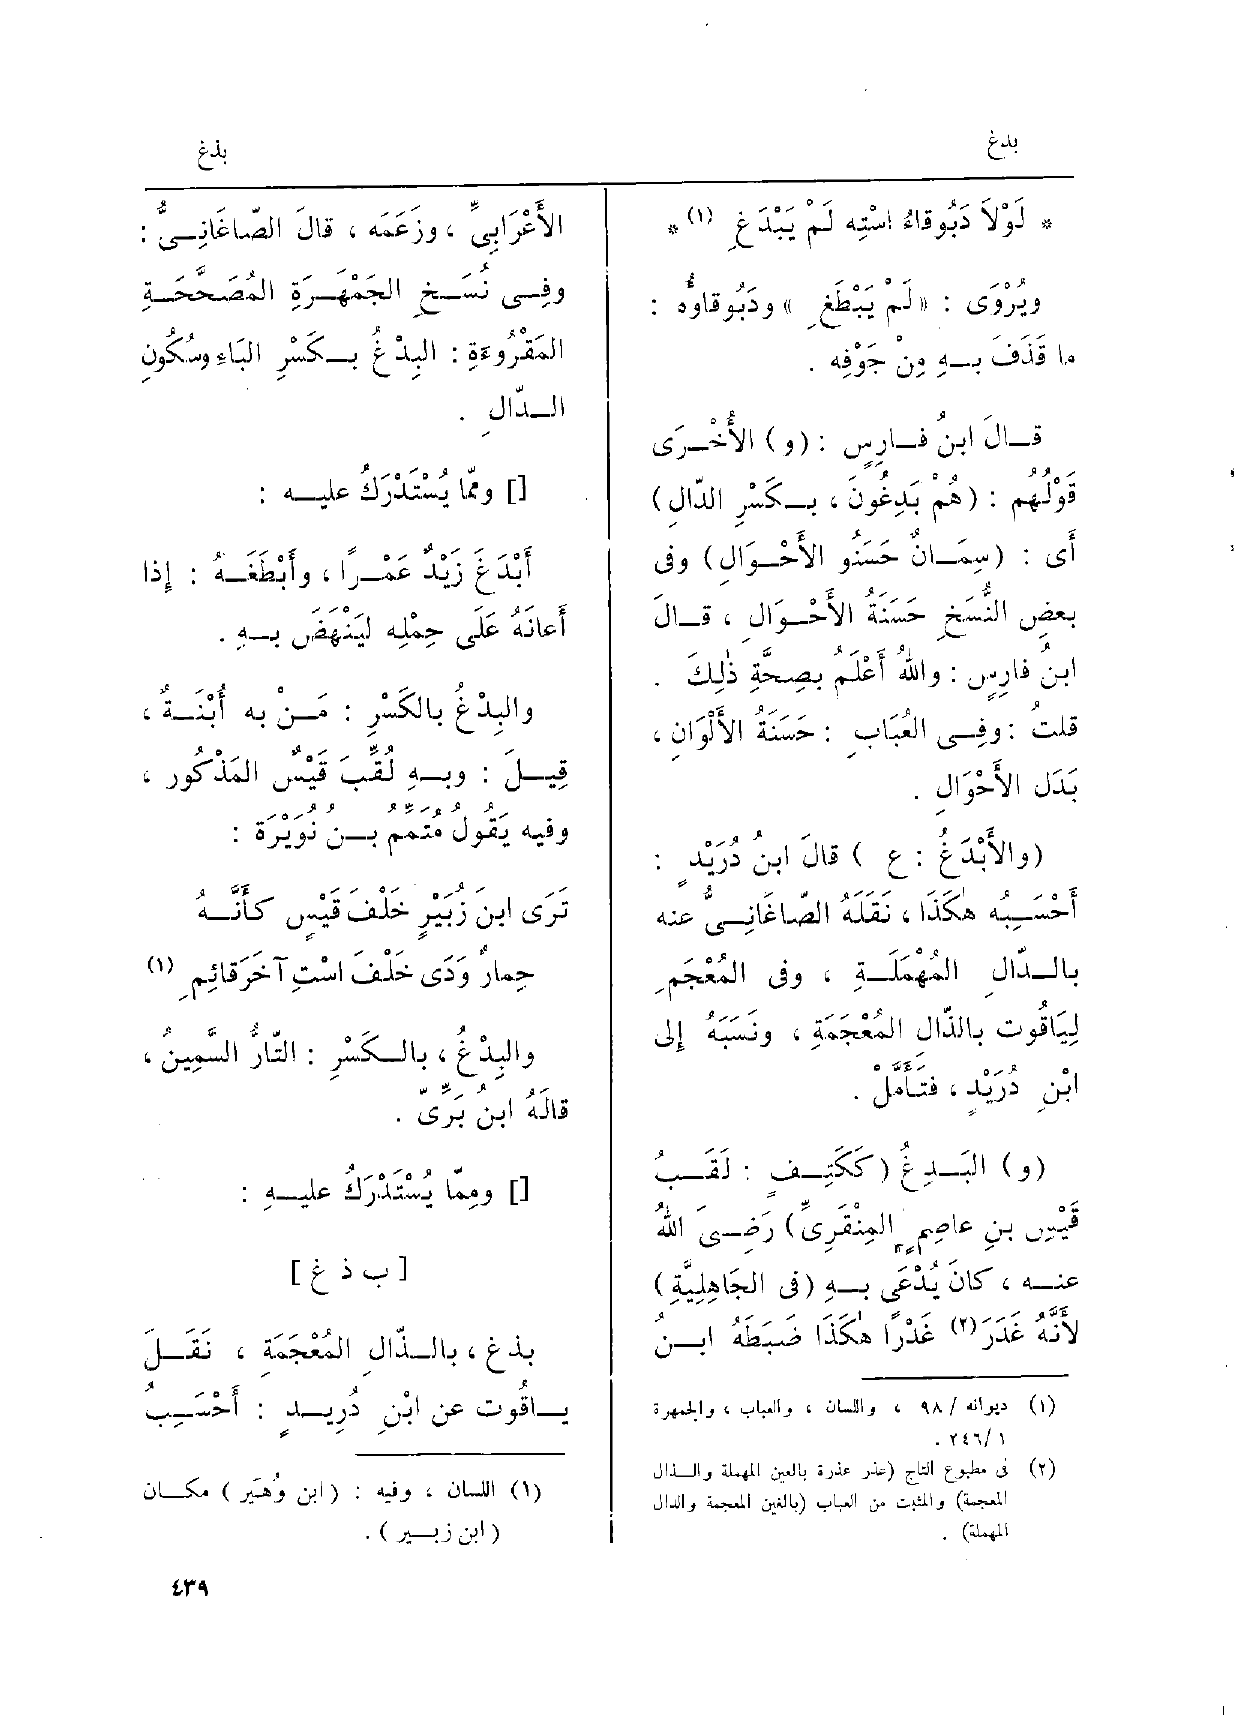 بدغ
بذغ
* لَوْلاَ دَبُوقاءُ اسْتِه لَمْ يَبْدَغِ (١) *
ويُرْوَى : «لَمْ يَبْطَغِ » ودَبُوقاوُه :
ما قَذَفَ بـهِ مِنْ جَوْفِه .
قـالَ ابنُ فـارِسٍ : (و) الأُخْـرَى
قَوْلُهم : (هُمْ بَدِغُونَ ، بـكَسْرِ الدّالِ)
أى : (سِمَـانٌ حَسَنُو الأَحْـوَالِ) وفى
بعضِ النُّسَخِ حَسَنَةُ الأَحْـوَالِ ، قـالَ
ابنُ فارِسٍ : واللهُ أَعْلَمُ بصِحَّةِ ذٰلِكَ .
قلتُ : وفِـى العُبَابِ : حَسَنَةُ الأَلْوَانِ ،
بَدَل الأَحْوَالِ .
(والأَبْدَغُ : ع ) قالَ ابنُ دُرَيْدٍ :
أَحْسَـبُه هكَذَا ، نَقَلَهُ الصّاغَانِـىُّ عنه
بالـدّالِ المُهْمَلَـةِ ، وفى المُعْجَمِ
لِيَاقُوت بالذّالِ المُعْجَمَةِ ، ونَسَبَهُ إلى
ابْنِ دُرَيْدٍ ، فتَأَمَّلْ .
(و) البَـدِغُ (ككَتِـفٍ : لَقَـبُ
قَيْسِ بنِ عاصِمٍ المِنْقَرِىِّ) رَضِـىَ اللهُ
عنـه ، كانَ يُدْعَى بـهِ (فى الجَاهِلِيَّةِ)
لأَنَّهُ غَدَرَ (٢) غَدْرًا هكَذَا ضَبَطَهُ ابـنُ
(١) ديوانه / ٩٨ ، واللسان ، والعباب ، والجمهرة
١/ ٢٤٦ .
(٢) فى مطبوع التاج (عذر عذرة بالعين المهملة والـذال
المعجمة) والمثبت من العباب (بالغين المعجمة والدال
المهملة) .
الأَعْرَابِىِّ ، وزَعَمَه ، قالَ الصّاغَانِـىُّ :
وفِـى نُسَـخِ الجَمْهَـرَةِ المُصَحَّحَـةِ
المَقْرُوءَةِ : البِدْغُ بـكَسْرِ البَاءِ وسُكُونِ
الـدّالِ .
[] وممّا يُسْتَدْرَكُ عليـه :
أَبْدَغَ زَيْدٌ عَمْـرًا ، وأَبْطَغَـهُ : إذا
أَعانَهُ عَلَى حِمْلِه لِيَنْهَضَ بـهِ .
والبِدْغُ بالكَسْرِ : مَـنْ به أُبْنَـةٌ ،
قِيـلَ : وبـهِ لُقِّبَ قَيْسٌ المَذْكُور ،
وفيه يَقُولُ مُتَمِّمُ بـنُ نُوَيْرَةَ :
تَرَى ابنَ زُبَيْرٍ خَلْفَ قَيْسٍ كأَنَّـهُ
حِمارٌ وَدَى خَلْفَ اسْتِ آخَرَ قائِمِ (١)
والبِدْغُ ، بالـكَسْرِ : التّارُّ السَّمِينُ ،
قالَهُ ابنُ بَرِّىّ .
[] ومِمّا يُسْتَدْرَكُ عليـهِ :
[ ب ذ غ ]
بذغ ، بالـذّالِ المُعْجَمَةِ ، نَقَـلَ
يـاقُوت عن ابْنِ دُرَيـدٍ : أَحْسَـبُ
(١) اللسان ، وفيه : ( ابن وُهَيَر ) مكـان
( ابن زبـير ) .
٤٣٩